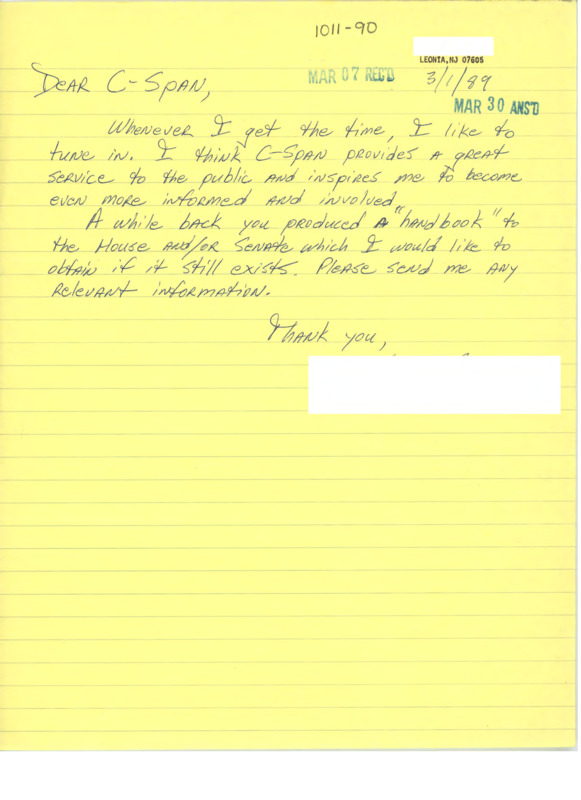 1011-90
LEONIA, NJ 07605
MAR 07 REC'D
3/1/89
MAR 30 ANS'D
DEAR C-SPAN,
Whenever I get the time, I like to
tune in. I think C-SPAN provides a great
service to the public and inspires me to become
even more informed and involved.
A while back you produced a "handbook" to
the House and/or Senate which I would like to
obtain if it still exists. Please send me any
relevant information.
Thank you,